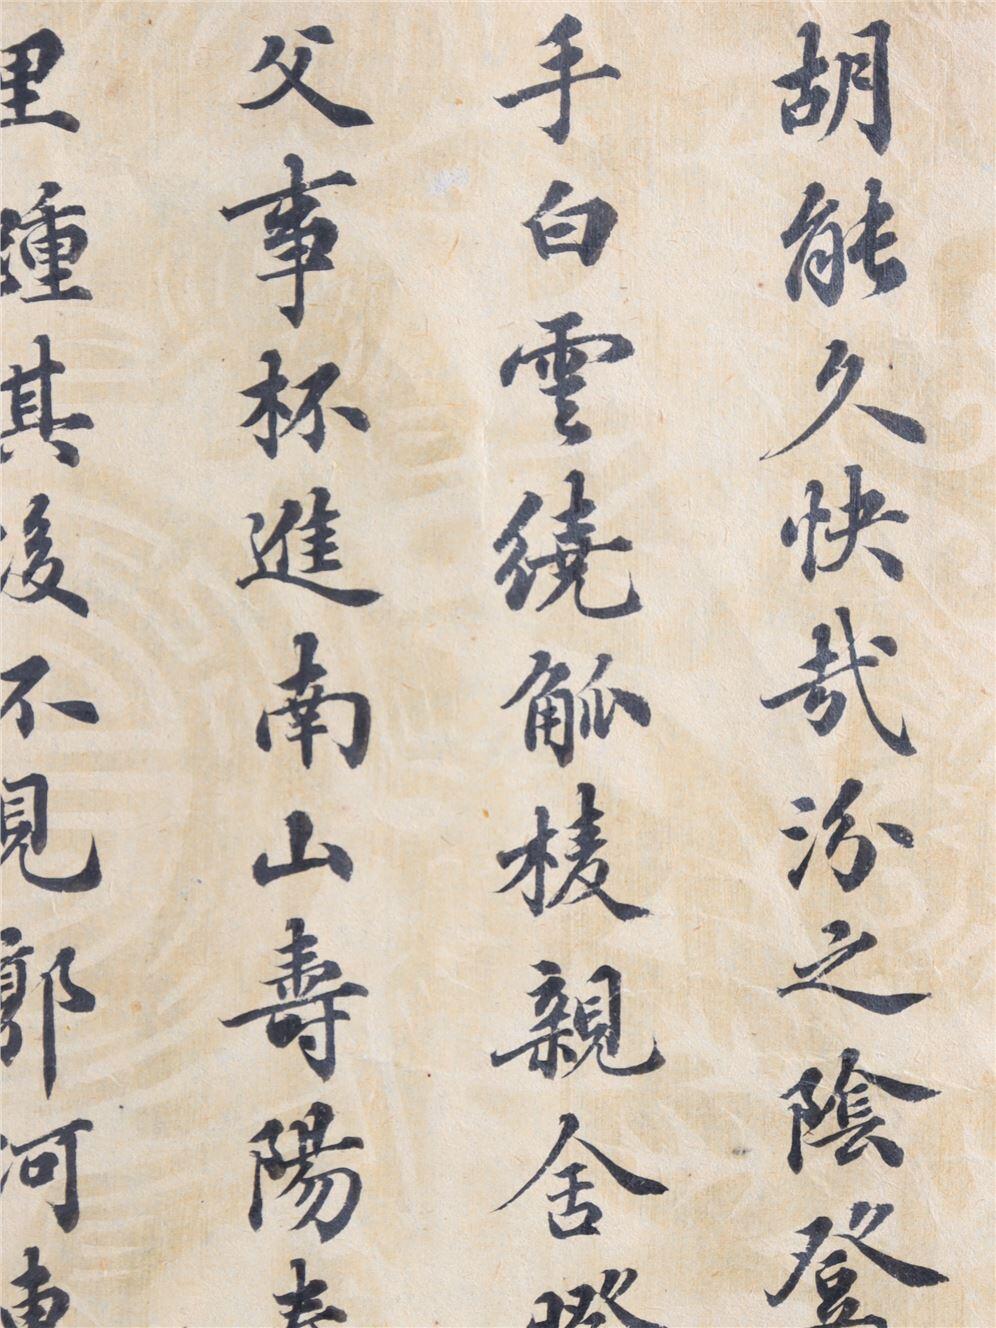 胡能久快哉汾之陰登
手白雲繞觚棱親舍
父事杯進南山壽陽
其後不見郭河